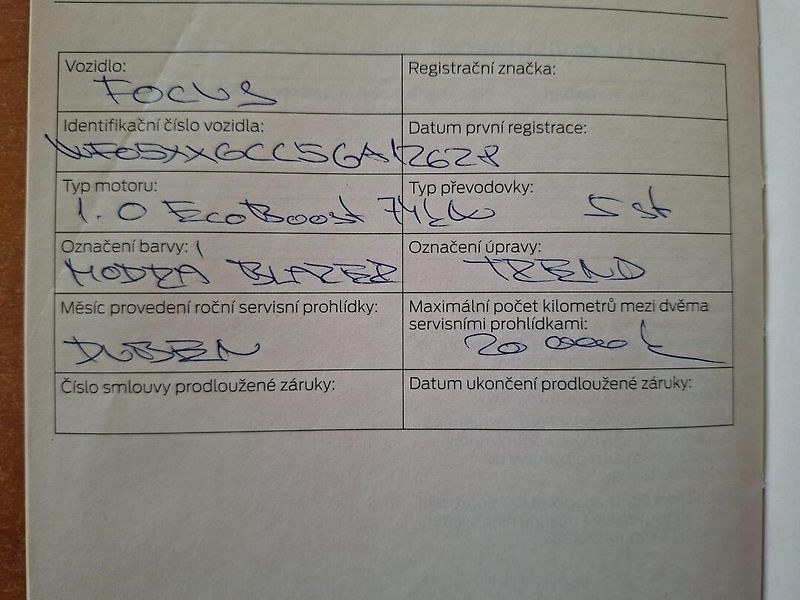 Vozidlo:
FOCUS
Registrační značka:
Identifikační číslo vozidla:
WF05XXGCC5GA12628
Datum první registrace:
Typ motoru:
1.0 EcoBoost 74kW
Typ převodovky:
5 st
Označení barvy:
MODRÁ BLAZER
Označení úpravy:
TREND
Měsíc provedení roční servisní prohlídky:
DUBEN
Maximální počet kilometrů mezi dvěma
servisními prohlídkami:
20 000
Číslo smlouvy prodloužené záruky:
Datum ukončení prodloužené záruky: